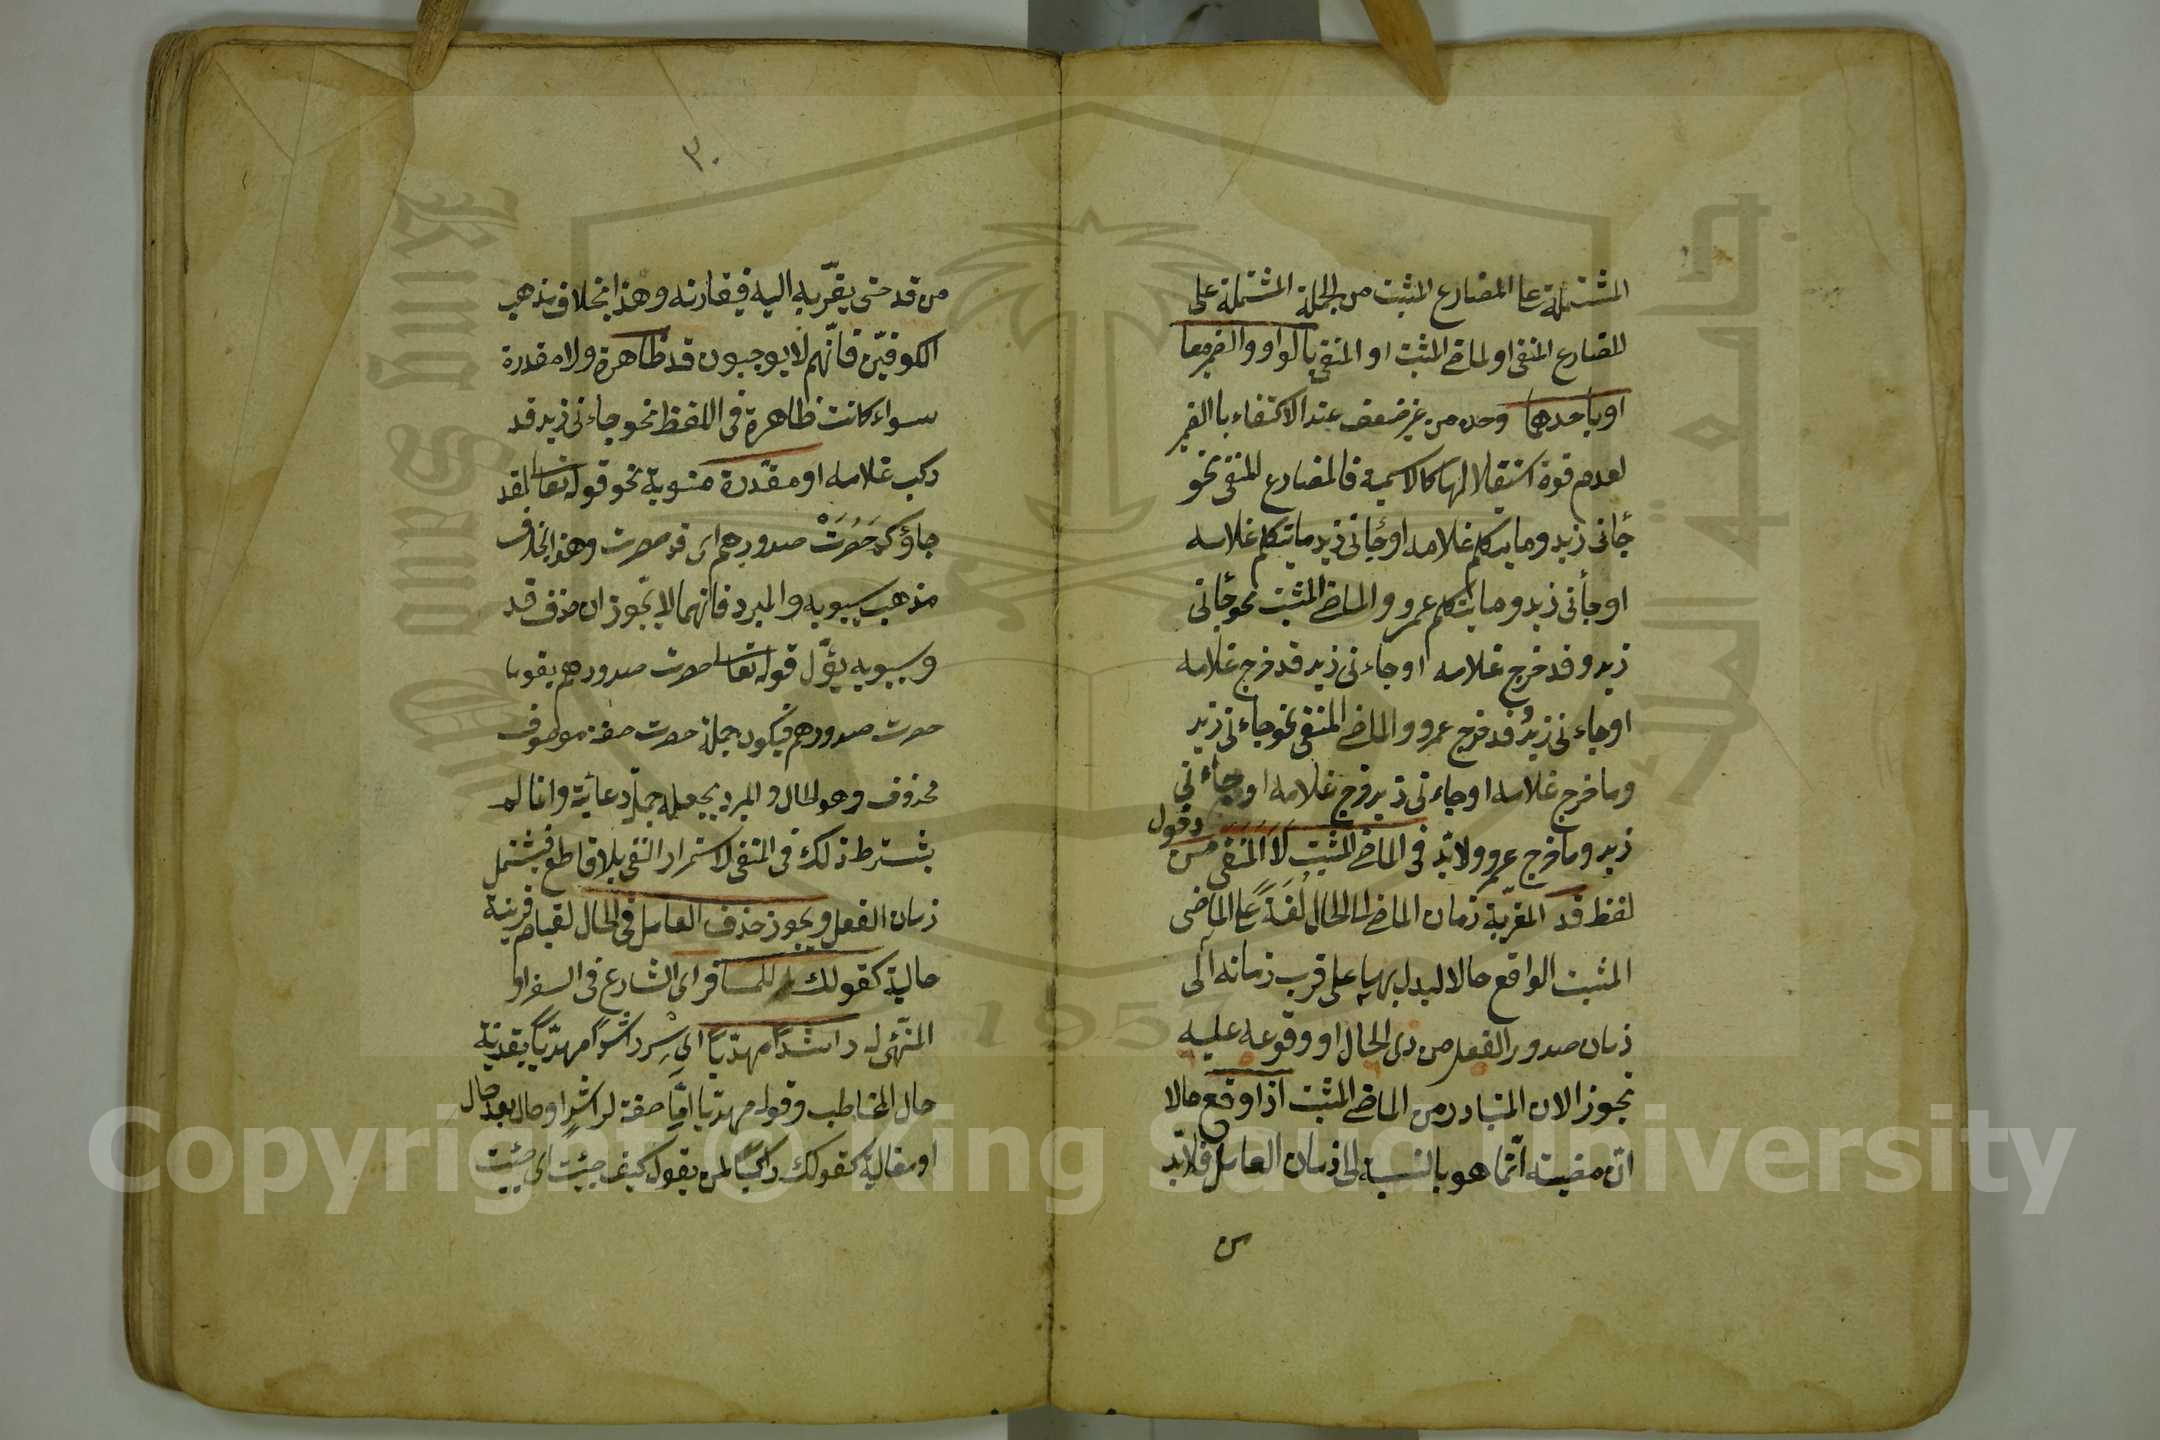 المشتملة على المضارع المثبت من الجملة المشتملة على
المضارع المنفى او لماضى المثبت او المنفى بالواو والضمير معا
او باحدهما وحده من غير ضعف عند الاكتفاء بالضمير
لعدم قوة استقلالها كالاسمية فالمضارع المنفى نحو
جأنى زيد وما يتكلم غلامه او جأنى زيد ما يتكلم غلامه
او جأنى زيد وما يتكلم عمرو والماضى المثبت نحو جأنى
زيد وقد خرج غلامه او جاءنى زيد قد خرج غلامه
او جاءنى زيد وقد خرج عمرو والماضى المنفى نحو جاءنى زيد
وما خرج غلامه او جاءنى زيد خرج غلامه او جاءنى
زيد وما خرج عمرو ولا بد فى الماضى المثبت لا المنفى من دخول
لفظ قد المقربة زمان الماضى الى الحال لغة على الماضى
المثبت الواقع حالا ليدل بها على قرب زمانه الى
زمان صدور الفعل من ذى الحال او وقوعه عليه
تجوز الان المتبادر من الماضى المثبت اذا وقع حالا
ان مضيته انما هو بالنسبة الى زمان العامل فلا بد
من
٣٠
من قد حتى يقربه اليه فيقارنه وهذا بخلاف مذهب
الكوفيين فانهم لا يوجبون قد ظاهرة ولا مقدرة
سواء كانت ظاهرة فى اللفظ نحو جاءنى زيد قد
ركب غلامه او مقدرة منوية نحو قوله تعالى
جاؤكم حصرت صدورهم اى قد حصرت وهذا بخلاف
مذهب سيبويه والمبرد فانهما لا يجوزان حذف قد
وسيبويه يؤول قوله تعالى حصرت صدورهم بقوما
حصرت صدورهم فيكون جملة حصرت صفة موصوف
محذوف وهو الحال والمبرد يجعله جملة دعائية وانما لم
يشترط ذلك فى المنفى لاستمرار النفى بلا قاطع فيشتمل
زمان الفعل ويجوز حذف العامل فى الحال لقيام قرينة
حالية كقولك للمسافر اى الشارع فى السفر او
المتهئ له راشدا مهديا اى سر راشدا مهديا بقرينة
حال المخاطب وقوله مهديا اما صفة لراشدا او حال بعد حال
او مقالية كقولك راكبا لمن يقول كيف جئت اى جئت
Copyright © King Saud University
King Saud University
جامعة الملك سعود
1957